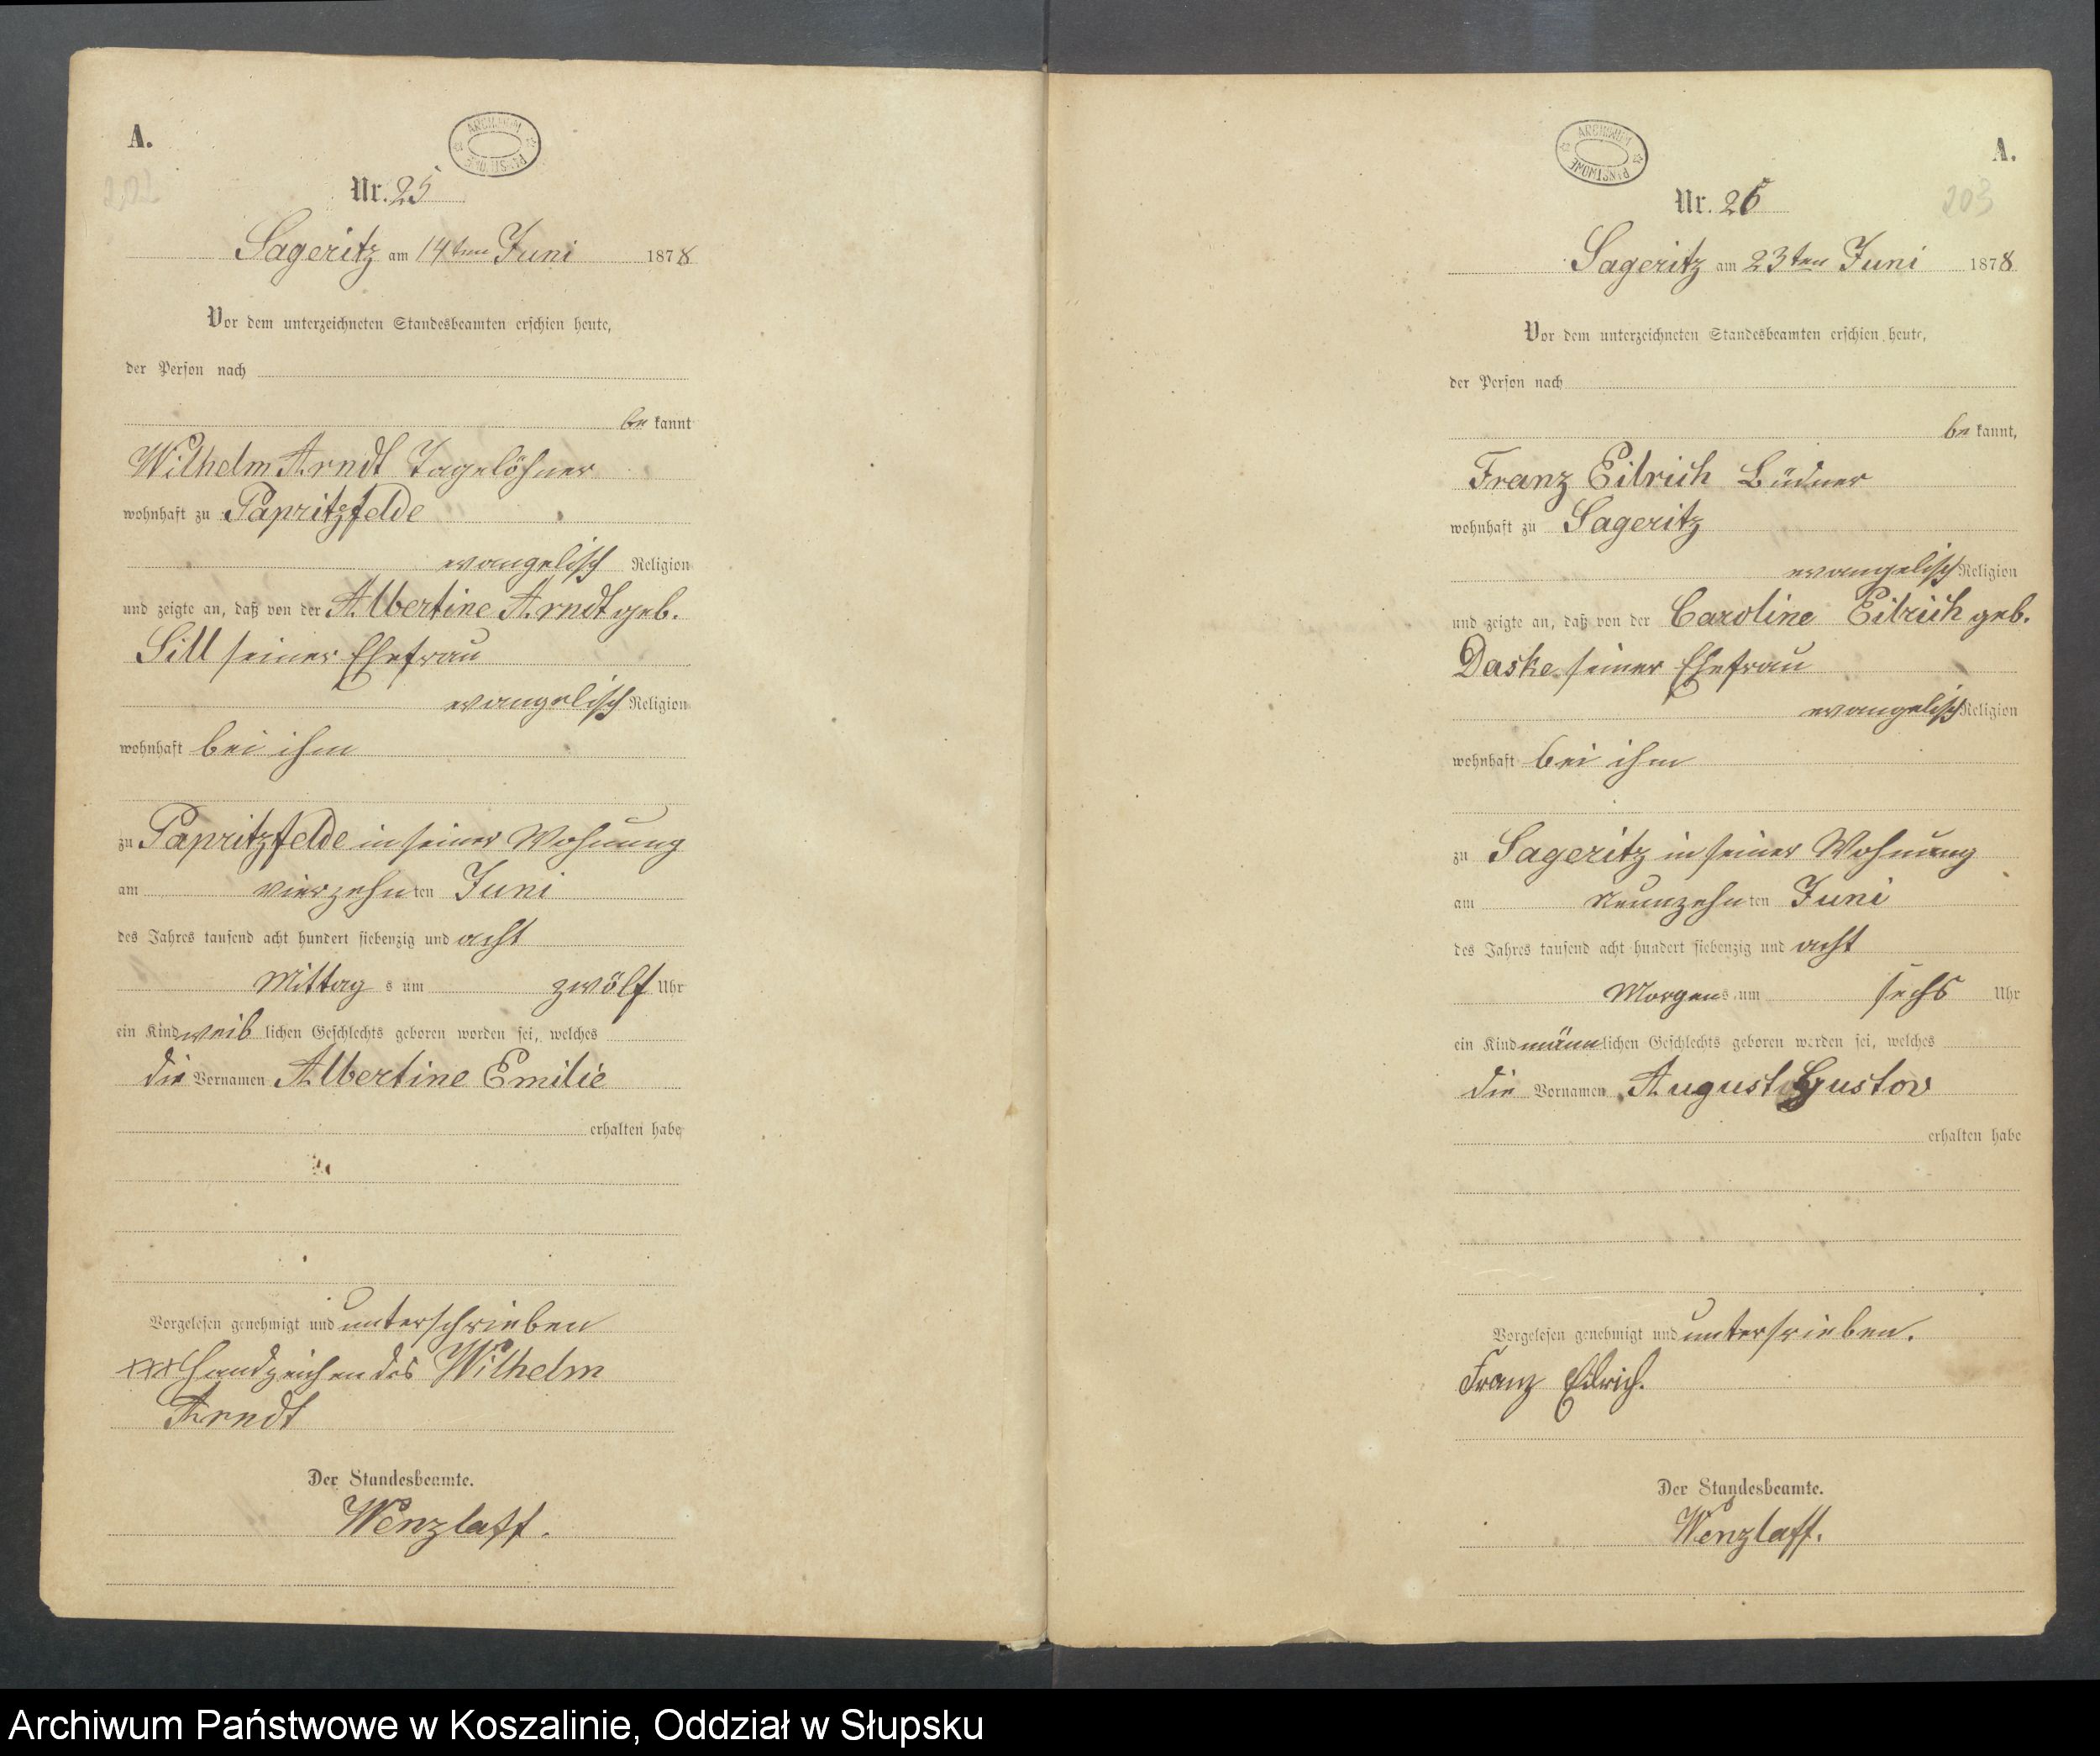 A.
ARCHIWUM PAŃSTWOWE
202
Nr. 25
Sageritz am 14ten Juni 1878
Vor dem unterzeichneten Standesbeamten erschien heute,
der Person nach
be kannt
Wilhelm Arndt Tagelöhner
wohnhaft zu Papritzfelde
evangelisch Religion
und zeigte an, daß von der Albertine Arndt geb.
Sill seiner Ehefrau
evangelisch Religion
wohnhaft bei ihm
zu Papritzfelde in seiner Wohnung
am vierzehn ten Juni
des Jahres tausend acht hundert siebenzig und acht
Mittag s um zwölf Uhr
ein Kind weib lichen Geschlechts geboren worden sei, welches
die Vornamen Albertine Emilie
erhalten habe
Vorgelesen genehmigt und unterschrieben
xxx Handzeichen des Wilhelm
Arndt
Der Standesbeamte.
Wenzlaff.
A.
ARCHIWUM PAŃSTWOWE
203
Nr. 26
Sageritz am 23ten Juni 1878
Vor dem unterzeichneten Standesbeamten erschien heute,
der Person nach
be kannt,
Franz Eilrich Büdner
wohnhaft zu Sageritz
evangelisch Religion
und zeigte an, daß von der Caroline Eilrich geb.
Daske seiner Ehefrau
evangelisch Religion
wohnhaft bei ihm
zu Sageritz in seiner Wohnung
am neunzehn ten Juni
des Jahres tausend acht hundert siebenzig und acht
Morgen s um sechs Uhr
ein Kind männ lichen Geschlechts geboren worden sei, welches
die Vornamen August Gustav
erhalten habe
Vorgelesen genehmigt und untersrieben.
Franz Eilrich.
Der Standesbeamte.
Wenzlaff.
Archiwum Państwowe w Koszalinie, Oddział w Słupsku